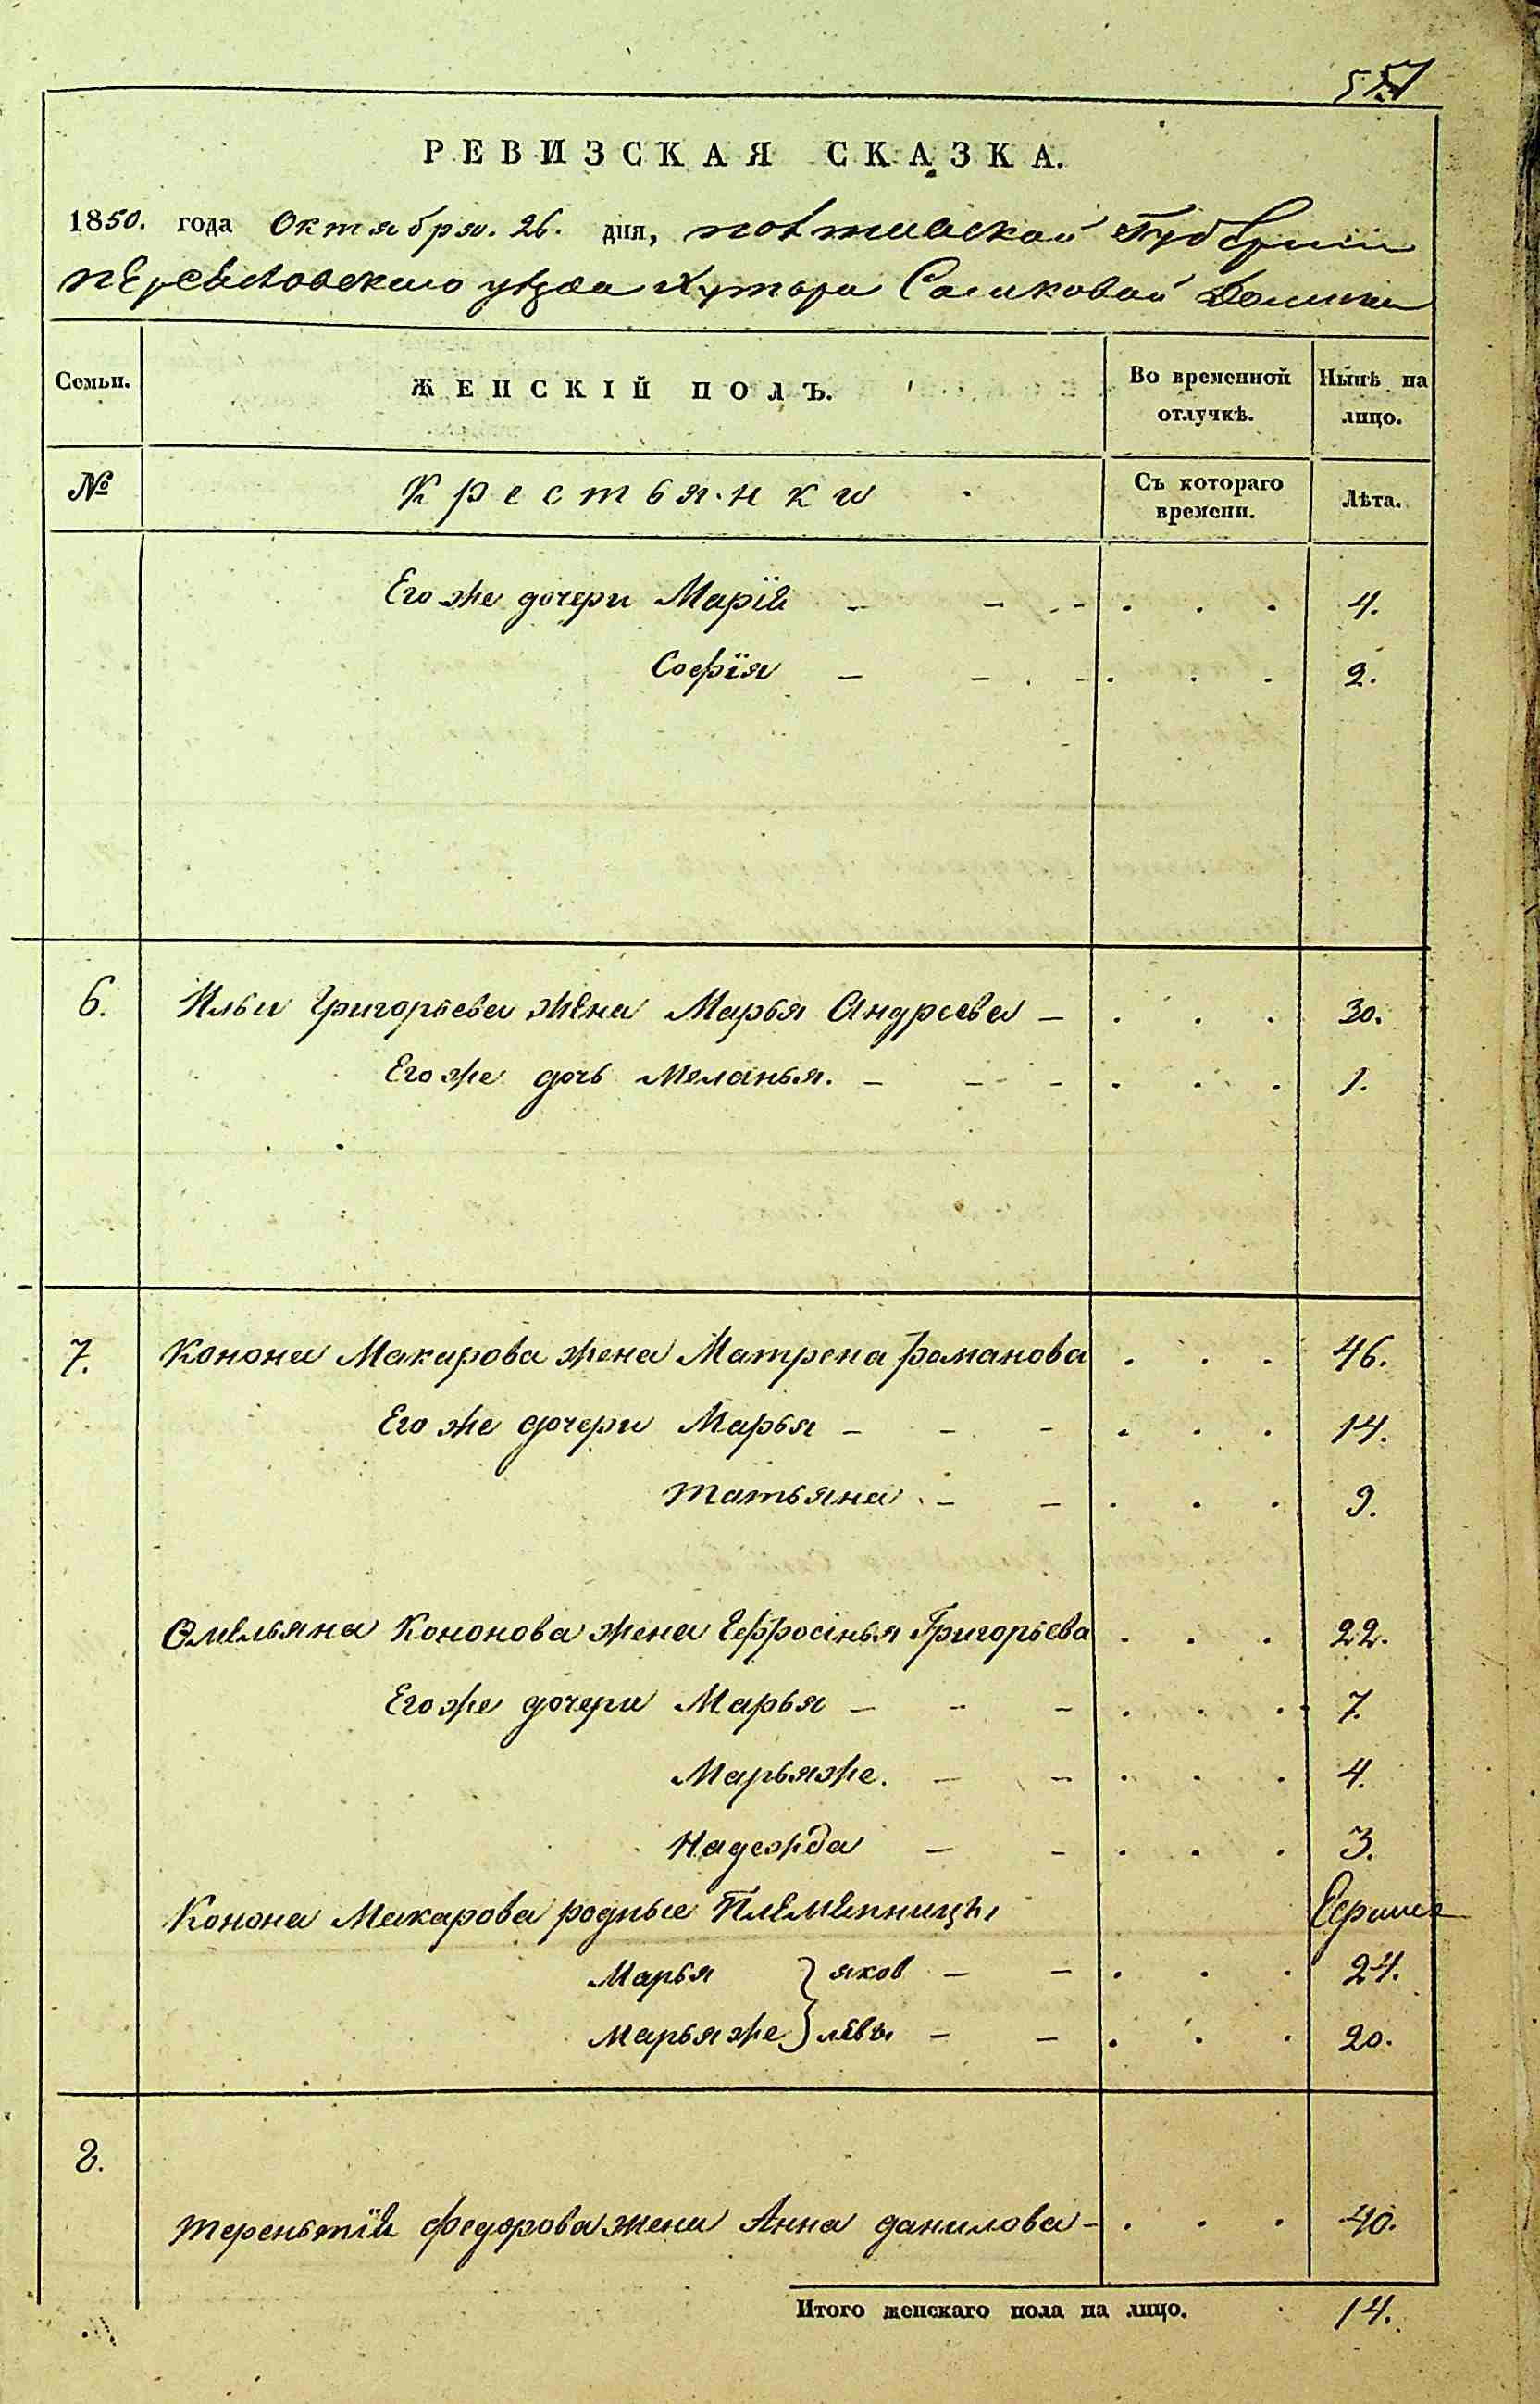 РЕВИЗСКАЯ СКАЗКА.
1850. года Октября. 26. дня, полтавской Губернии
уезда Хутора Долины
Семьи. ЖЕНСКІЙ ПОЛЪ. Во временной отлучкѣ. Нынѣ на лицо.
№ Крестьянки Съ котораго времени. Лѣта.
Его же дочери Марія 4.
Софія 2.
6. Ильи Григорьева жена Марья Андреева 30.
Его же дочь Меланья. 1.
7. Конона Макарова жена Матрена Романова 46.
Его же дочери Марья 14.
Татьяна 9.
Омельяна Кононова жена Ефросінья Григорьева 22.
Его же дочери Марья 7.
Марья же. 4.
Надежда 3.
Конона Макарова родные племянницы
Марья } яков 24.
Марья же } левы 20.
8.
Терентія Федорова жена Анна данилова 40.
Итого женскаго пола на лицо. 14.